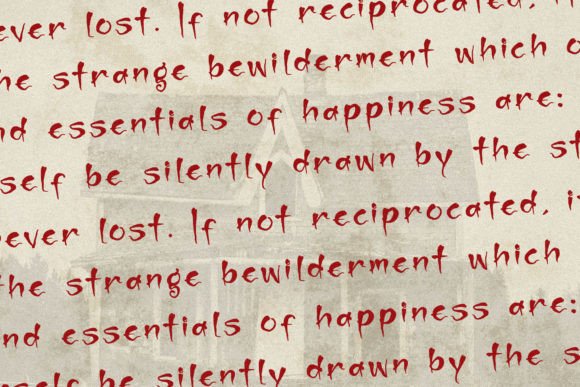 ever lost. If not reciprocated, i
he strange bewilderment which o
nd essentials of happiness are:
self be silently drawn by the st
ever lost. If not reciprocated, it
the strange bewilderment which
nd essentials of happiness are:
self be silently drawn by the s